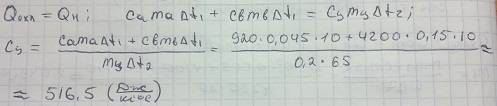 Qохл = Qн; cаmаΔt₁ + cвmвΔt₁ = cуmуΔt₂;
cу = (cаmаΔt₁ + cвmвΔt₁)/(mуΔt₂) = (920·0,045·10 + 4200·0,15·10)/(0,2·65) ≈
≈ 516,5 (Дж/кг°C)